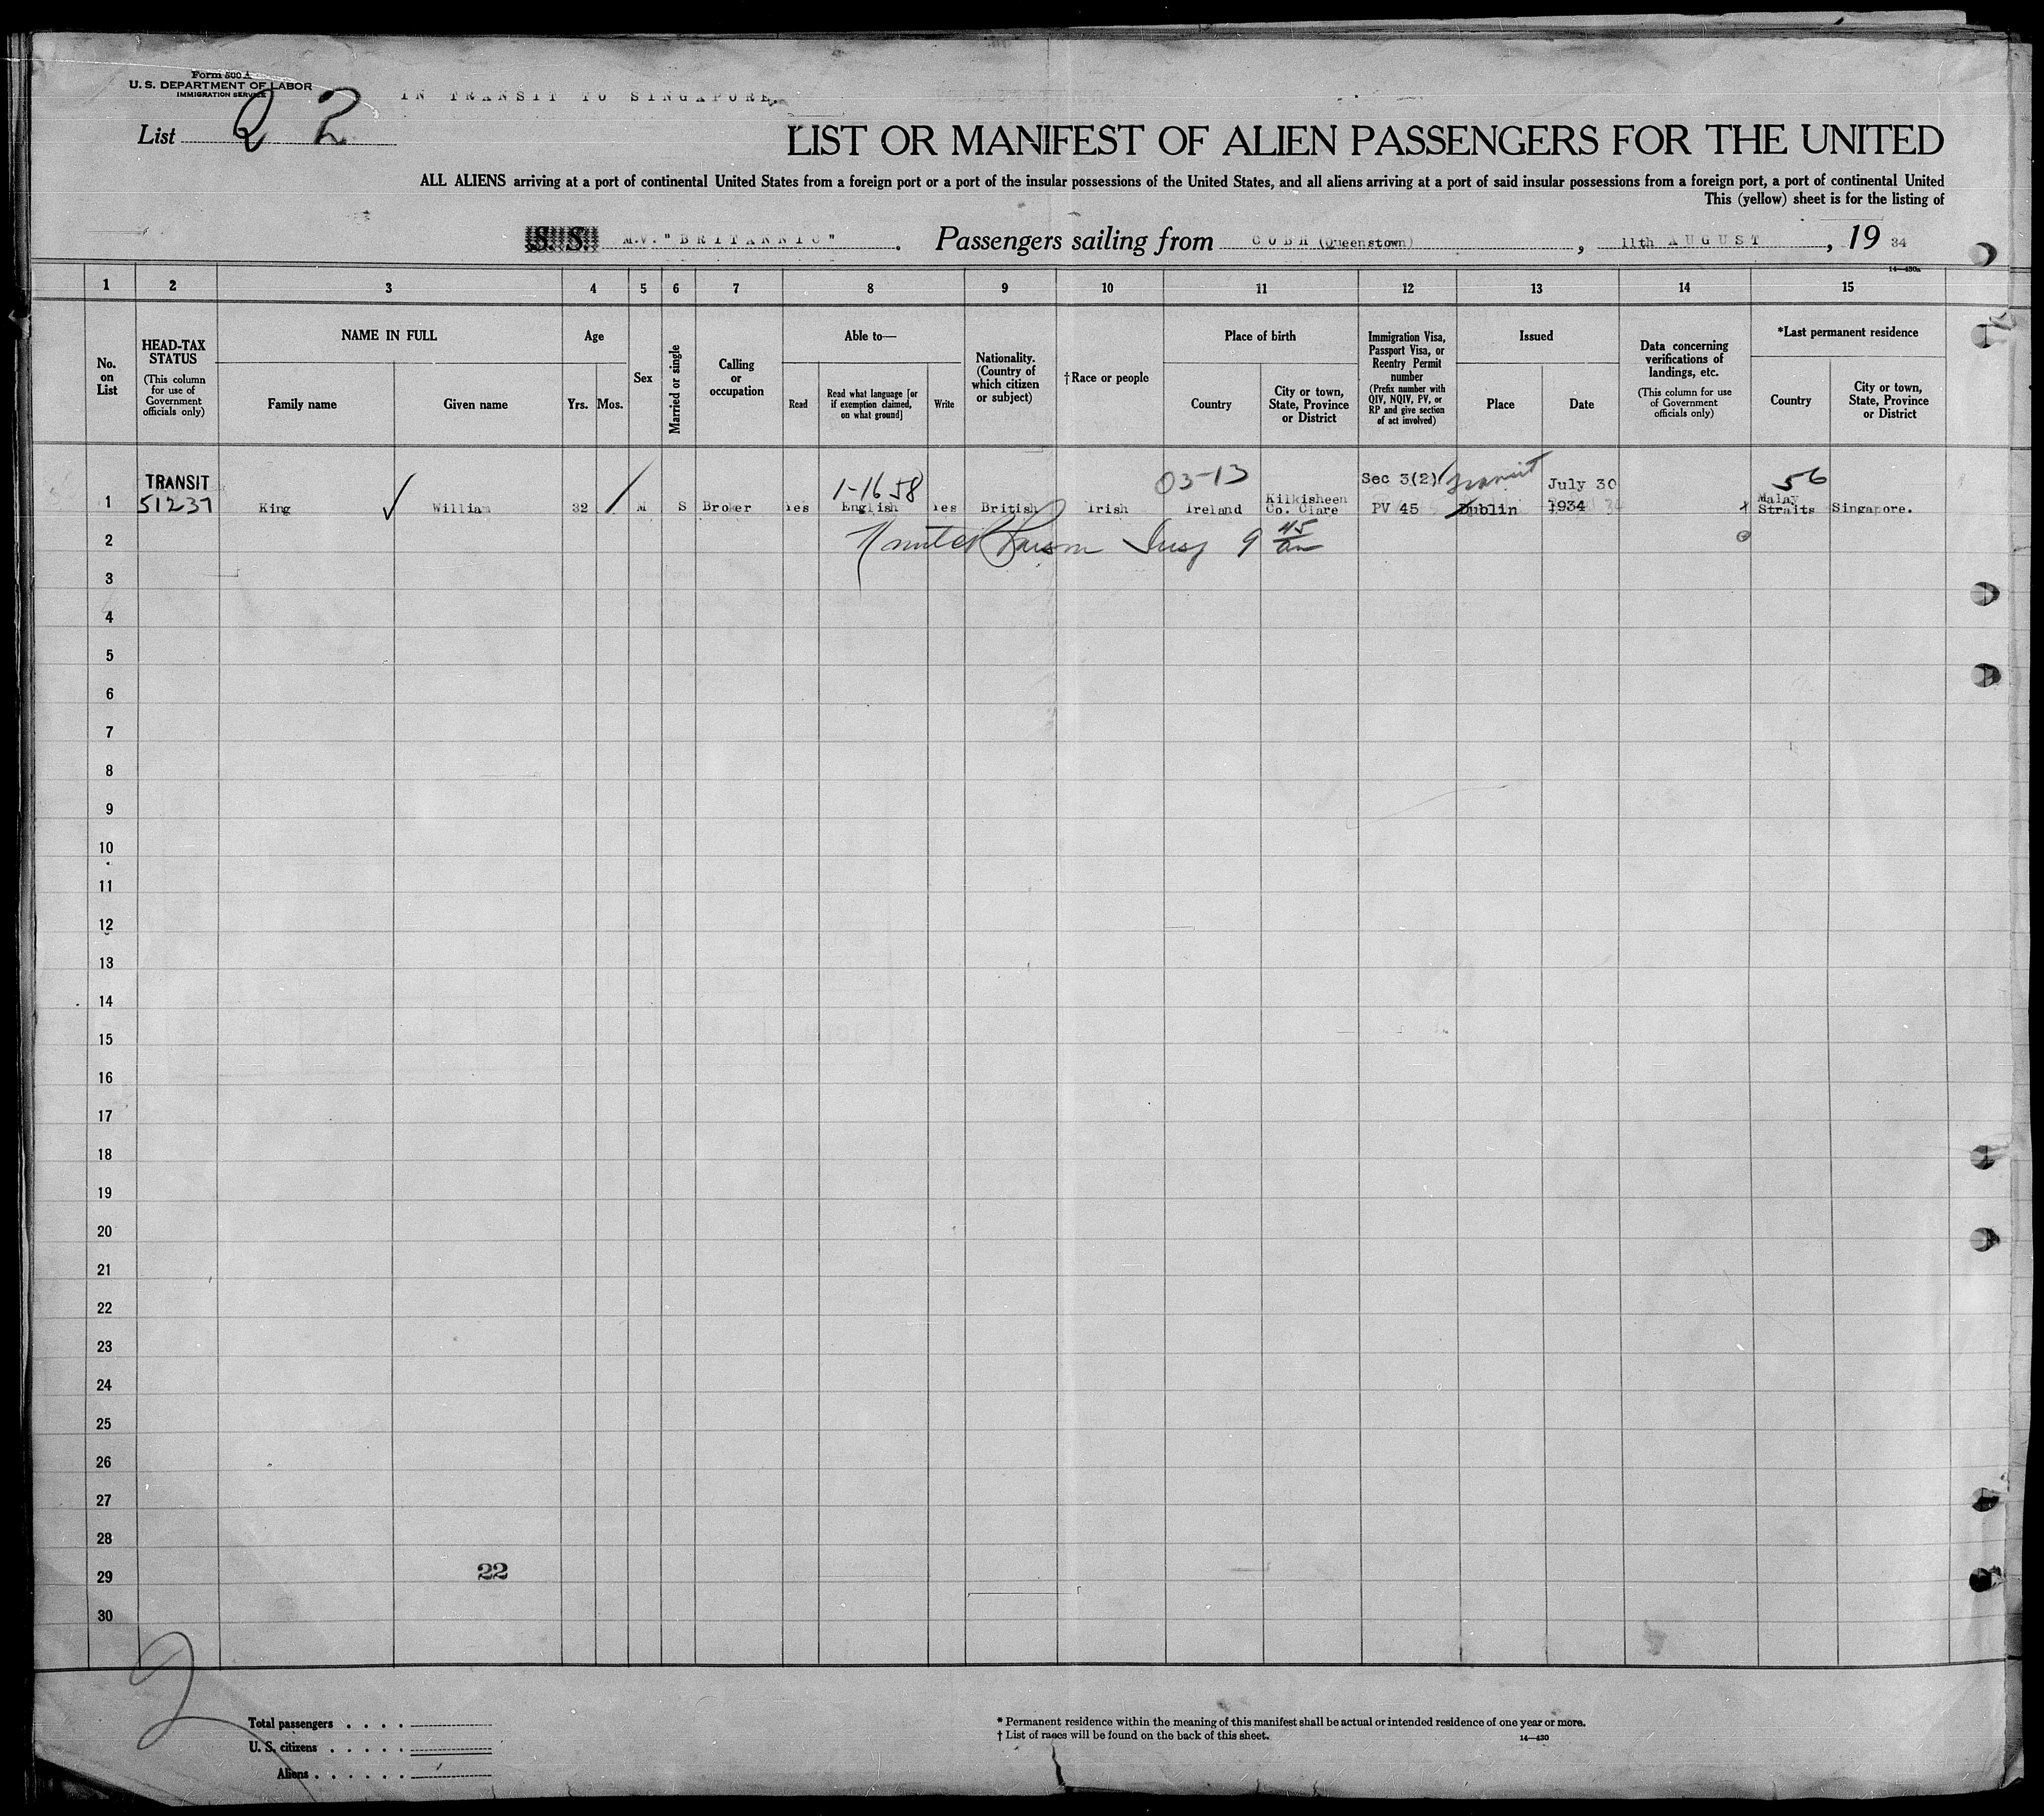 Form 500 A
U. S. DEPARTMENT OF LABOR
IMMIGRATION SERVICE
IN TRANSIT TO SINGAPORE.
List 22
LIST OR MANIFEST OF ALIEN PASSENGERS FOR THE UNITED
ALL ALIENS arriving at a port of continental United States from a foreign port or a port of the insular possessions of the United States, and all aliens arriving at a port of said insular possessions from a foreign port, a port of continental United
This (yellow) sheet is for the listing of
S. S. M.V. "BRITANNIC" . Passengers sailing from COBH (Queenstown) , 11th AUGUST , 19 34
14—430a
1 2 3 4 5 6 7 8 9 10 11 12 13 14 15
No. on List
HEAD-TAX STATUS
(This column for use of Government officials only)
NAME IN FULL
Family name
Given name
Age
Yrs.
Mos.
Sex
Married or single
Calling or occupation
Able to—
Read
Read what language [or if exemption claimed, on what ground]
Write
Nationality. (Country of which citizen or subject)
†Race or people
Place of birth
Country
City or town, State, Province or District
Immigration Visa, Passport Visa, or Reentry Permit number
(Prefix number with QIV, NQIV, PV, or RP and give section of act involved)
Issued
Place
Date
Data concerning verifications of landings, etc.
(This column for use of Government officials only)
*Last permanent residence
Country
City or town, State, Province or District
TRANSIT 1-16 58 03-13 Sec 3(2) Transit July 30 56
1 51237 King William 32 M S Broker Yes English Yes British Irish Ireland Kilkisheen Co. Clare PV 45 Dublin 1934 x Malay Straits Singapore.
2 9 45
3
4
5
6
7
8
9
10
11
12
13
14
15
16
17
18
19
20
21
22
23
24
25
26
27
28
29 22
30
2
Total passengers . . . .
U. S. citizens . . . . .
Aliens . . . . . .
* Permanent residence within the meaning of this manifest shall be actual or intended residence of one year or more.
† List of races will be found on the back of this sheet.
14—430